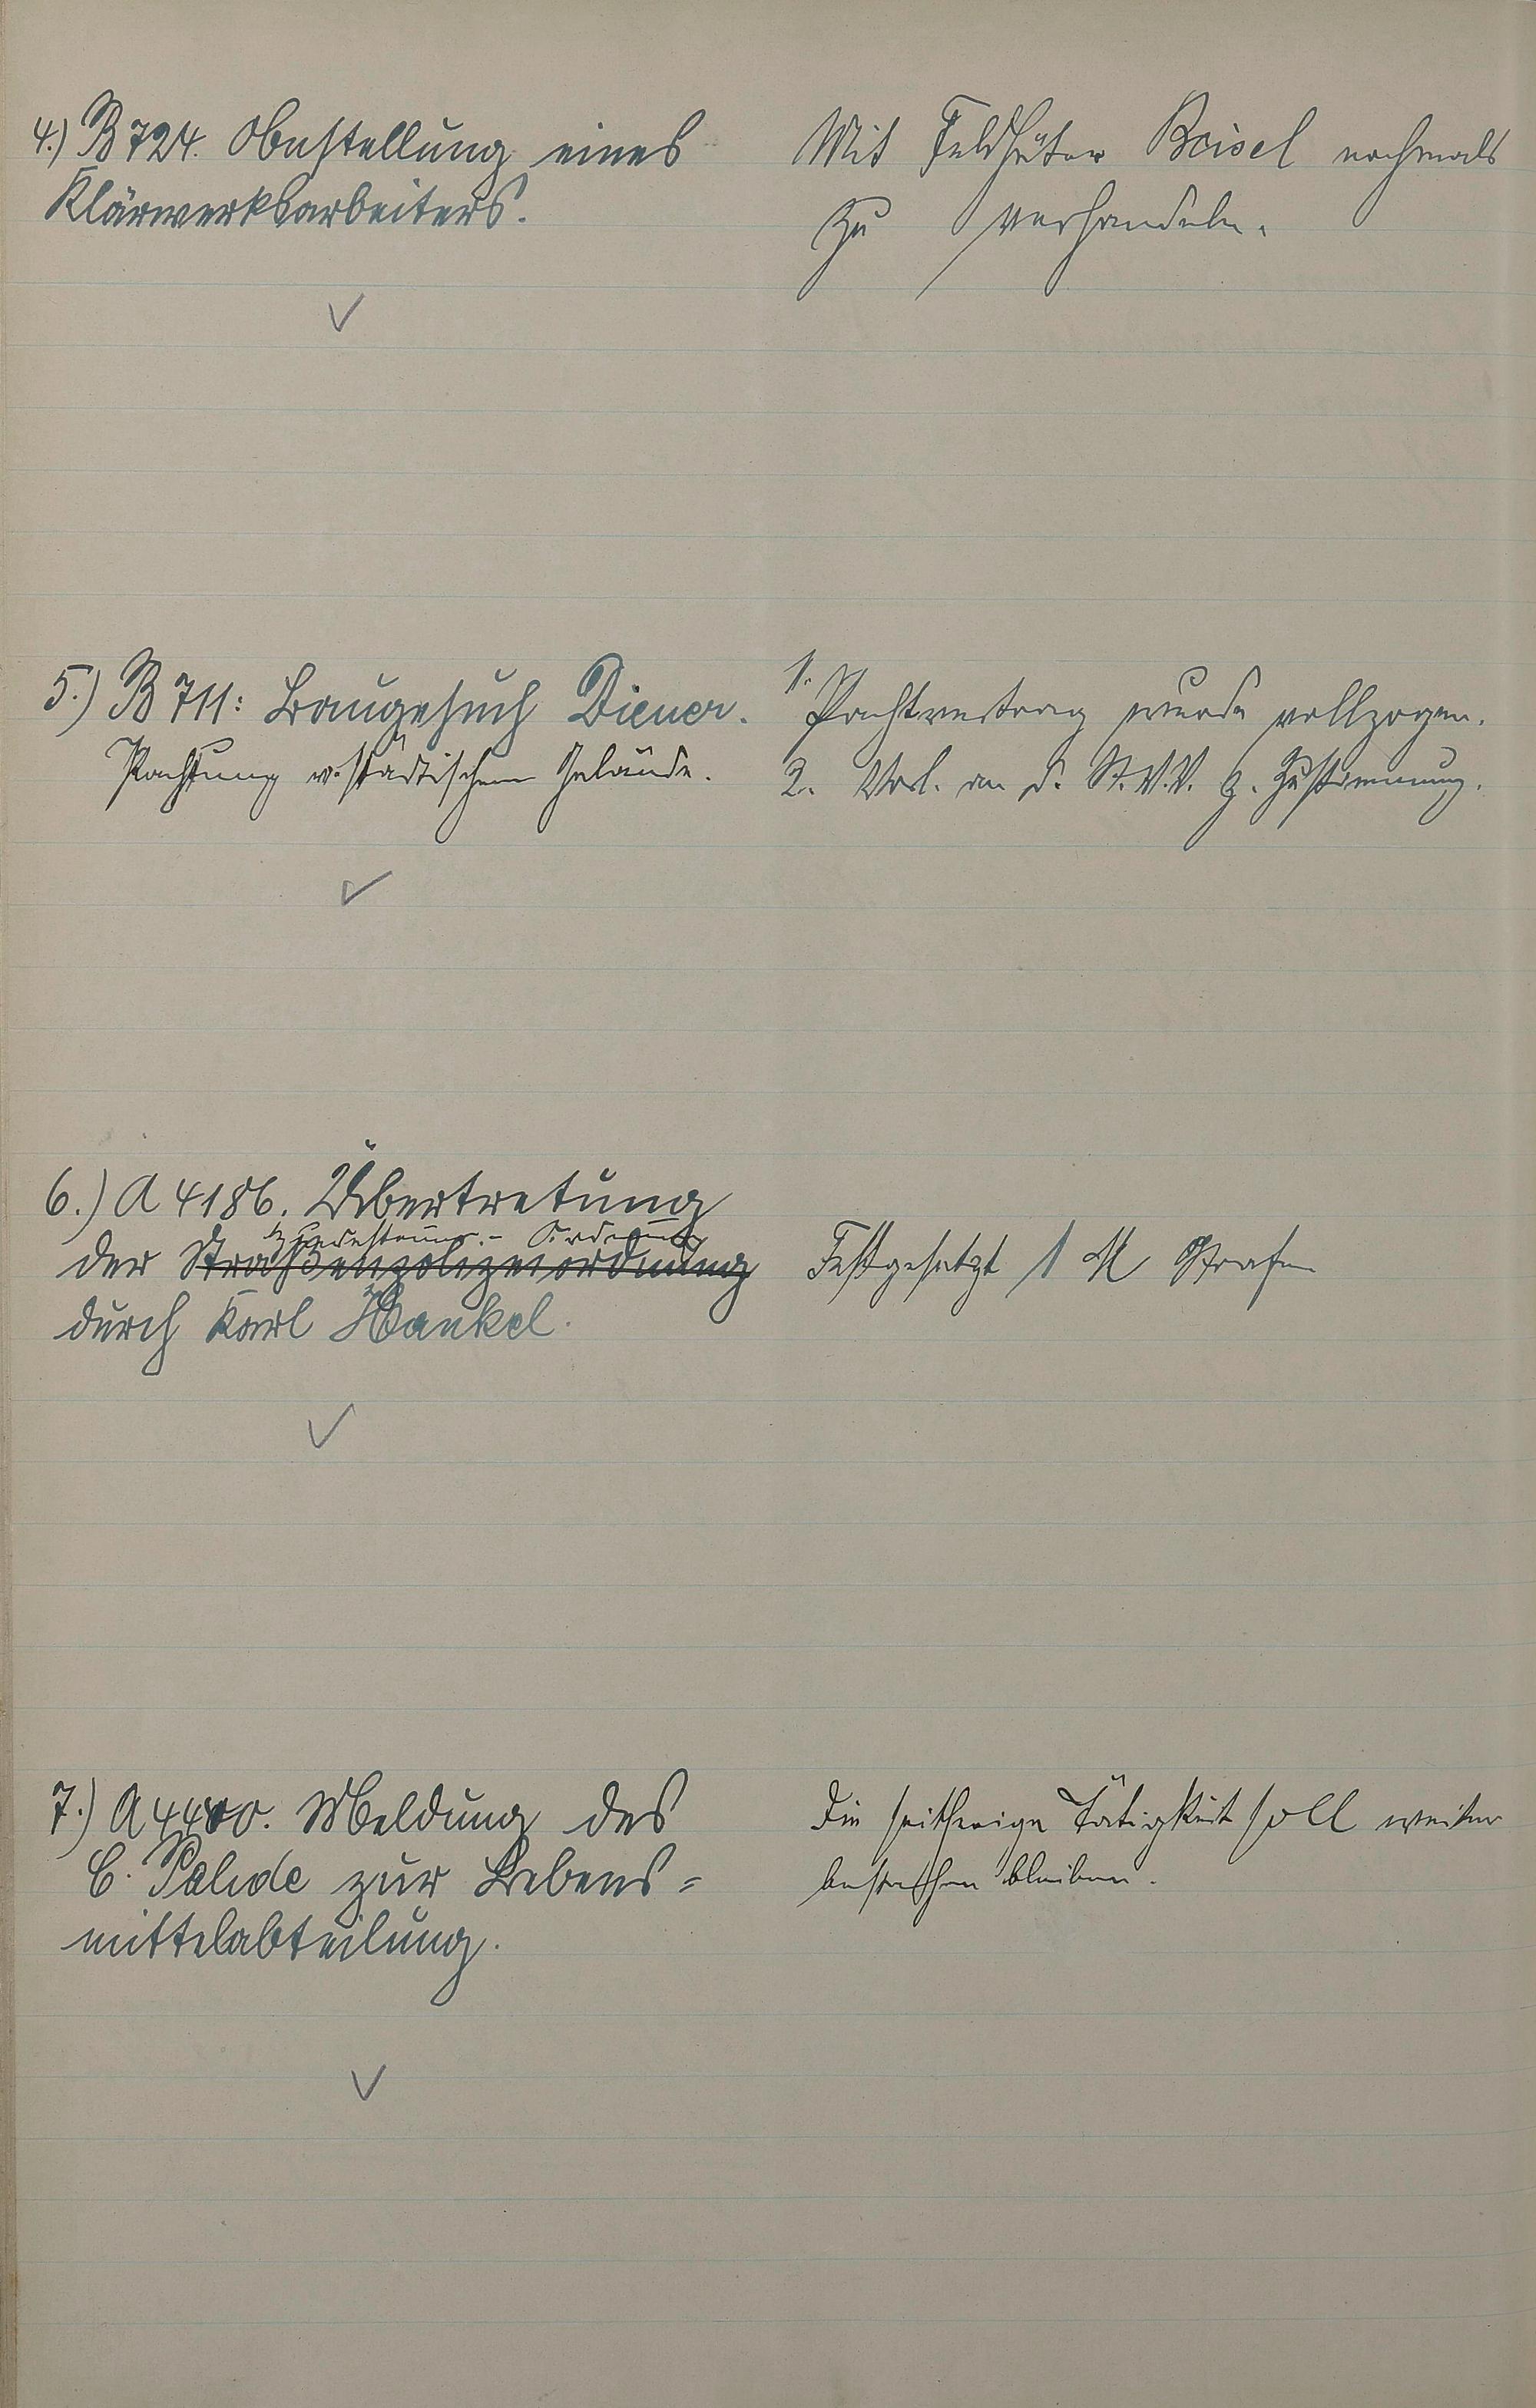 4.) B 724. Bestellung eines
Klärwerksarbeiters.
Mit Feldhüter Beisel nochmals
zu verhandeln.
5.) B 711: Baugesuch Diener.
Pachtung v. städtischem Gelände.
1. Pachtvertrag wurde vollzogen.
2. Vorl. an d. St.V.V. z. Zustimmung.
6.) A 4186. Übertretung
Ordnung
der Straßenpolizeiordnung
durch Karl Hankel.
Festgesetzt 1 M Strafe
7.) A 4400. Meldung des
C. Pahde zur Lebens=
mittelabteilung.
Die seitherige Tätigkeit soll weiter
bestehen bleiben.